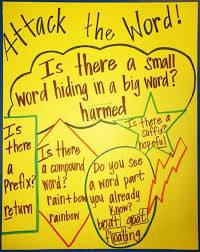 Attack the Word!
Is there a small
word hiding in a big word?
harmed
Is
there
a
Prefix?
return
Is there
a compound
word?
rain+bow
rainbow
Do you see
a word part
you already
know?
boat goat
floating
Is there a
suffix?
hopeful